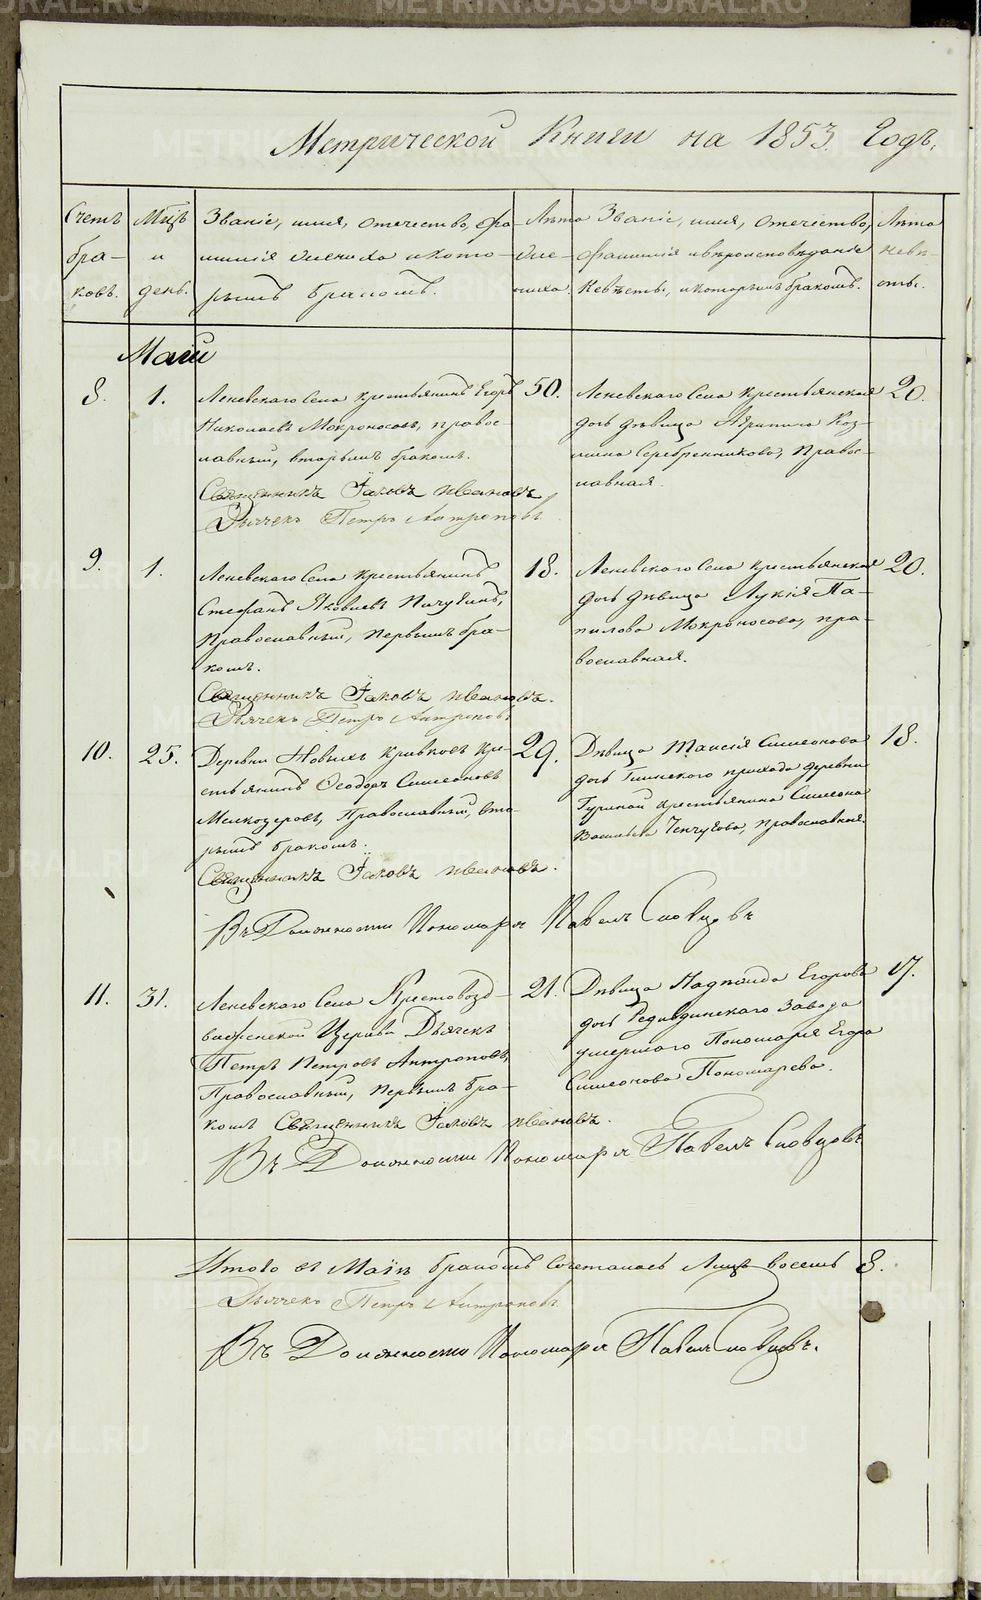 Метрической Книги на 1853. Годъ.
Счетъ браковъ.
Мѣцъ и день.
Званіе, имя, отечество, фамилія жениха и которымъ бракомъ.
Лѣта жениха.
Званіе, имя, отечество, фамилія и вѣроисповѣданіе невѣсты, и которымъ бракомъ.
Лѣта невѣсты.
Маій
8.
1.
Леневскаго Села крестьянинъ Егоръ
Николаевъ Мокроносовъ, правос-
лавный, вторымъ бракомъ.
Священникъ Іаковъ Ивановъ
Дьячекъ Петръ Антроповъ
50.
Леневскаго Села крестьянская
дочь дѣвица Агрипина Коз-
мина Серебренникова, Правос-
лавная.
20.
9.
1.
Леневскаго Села крестьянинъ
Стефанъ Яковлевъ Пичугинъ,
Православный, первымъ бра-
комъ.
Священникъ Іаковъ Ивановъ.
Дьячекъ Петръ Антроповъ
18.
Леневскаго Села крестьянская
дочь дѣвица Лукія Па-
пилова Мокроносова, пра-
вославная.
20.
10.
25.
Деревни Новыхъ Кривковъ кре-
стьянинъ Ѳеодоръ Симеоновъ
Мелкозеровъ, Православный, вто-
рымъ бракомъ.
Священникъ Іаковъ Ивановъ.
Въ Должности Пономаря Павелъ Словцовъ
29.
Дѣвица Таисія Симеонова
дочь прихода деревни
крестьянина Симеона
Васильева православная.
18.
11.
31.
Леневскаго Села Крестовозд-
виженской Церкви Дьячекъ
Петръ Петровъ Антроповъ,
Православный, первымъ бра-
комъ Священникъ Іаковъ Ивановъ.
Въ Должности Пономаря Павелъ Словцовъ
21.
Дѣвица Надежда Егорова
дочь Завода
умершаго Пономаря Егора
Симеонова Пономарева.
17.
Итого въ Маіѣ бракомъ сочеталось Лицъ восемь 8.
Дьячекъ Петръ Антроповъ
Въ Должности Пономаря Павелъ Словцовъ.
METRIKI.GASO-URAL.RU